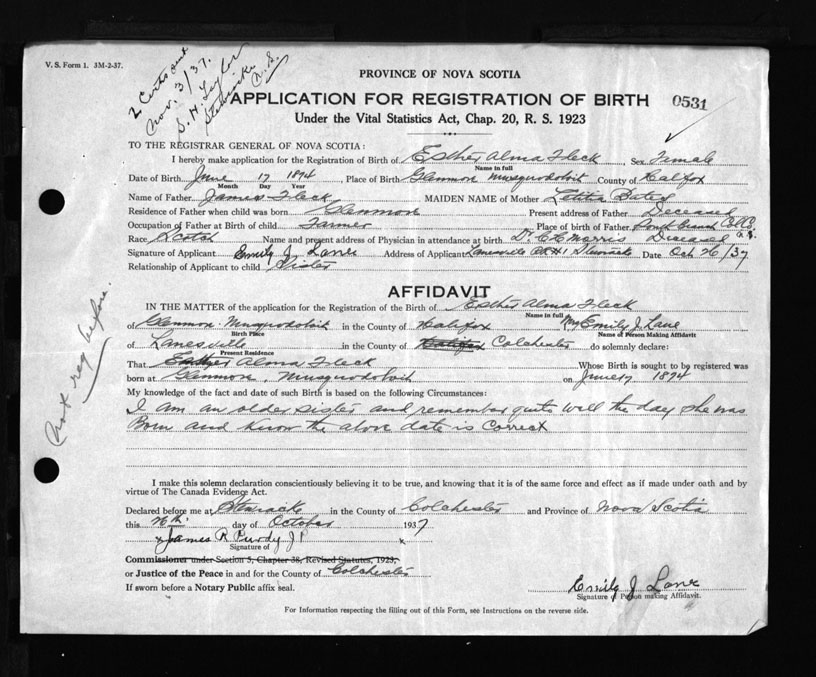 V. S. Form 1. 3M-2-37.
2 Certs out
Nov. 3/37.
S. H. Taylor
Stewiacke
N. S.
PROVINCE OF NOVA SCOTIA
APPLICATION FOR REGISTRATION OF BIRTH 0531
Under the Vital Statistics Act, Chap. 20, R. S. 1923
TO THE REGISTRAR GENERAL OF NOVA SCOTIA:
I hereby make application for the Registration of Birth of Esther Alma Fleck Sex Female
Name in full
Date of Birth June 17 1894 Place of Birth Glenmore Musquodoboit County of Halifax
Month Day Year
Name of Father James Fleck MAIDEN NAME of Mother Letitia Bates
Residence of Father when child was born Glenmore Present address of Father Deceased
Occupation of Father at Birth of child Farmer Place of birth of Father South Branch Col. Co. N.S.
Race Scotch Name and present address of Physician in attendance at birth Dr. Morris Deceased
Signature of Applicant Emily J. Lane Address of Applicant Lanesville R R #1 Stewiacke Date Oct 26/37
Relationship of Applicant to child Sister
AFFIDAVIT
IN THE MATTER of the application for the Registration of the Birth of Esther Alma Fleck
Name in full
of Glenmore Musquodoboit in the County of Halifax Mrs Emily J. Lane
Birth Place Name of Person Making Affidavit
of Lanesville in the County of Halifax Colchester do solemnly declare:
Present Residence
That Esther Alma Fleck Whose Birth is sought to be registered was
born at Glenmore, Musquodoboit on June 17 1894
My knowledge of the fact and date of such Birth is based on the following Circumstances:
I am an older sister and remember quite well the day she was
Born and know the above date is Correct
Not reg before.
I make this solemn declaration conscientiously believing it to be true, and knowing that it is of the same force and effect as if made under oath and by
virtue of The Canada Evidence Act.
Declared before me at Stewiacke in the County of Colchester and Province of Nova Scotia
this 26th day of October 1937
x James R Purdy J P x
Signature of
Commissioner under Section 5, Chapter 38, Revised Statutes, 1923,
or Justice of the Peace in and for the County of Colchester
If sworn before a Notary Public affix seal.
Emily J. Lane
Signature of Person making Affidavit.
For Information respecting the filling out of this Form, see Instructions on the reverse side.